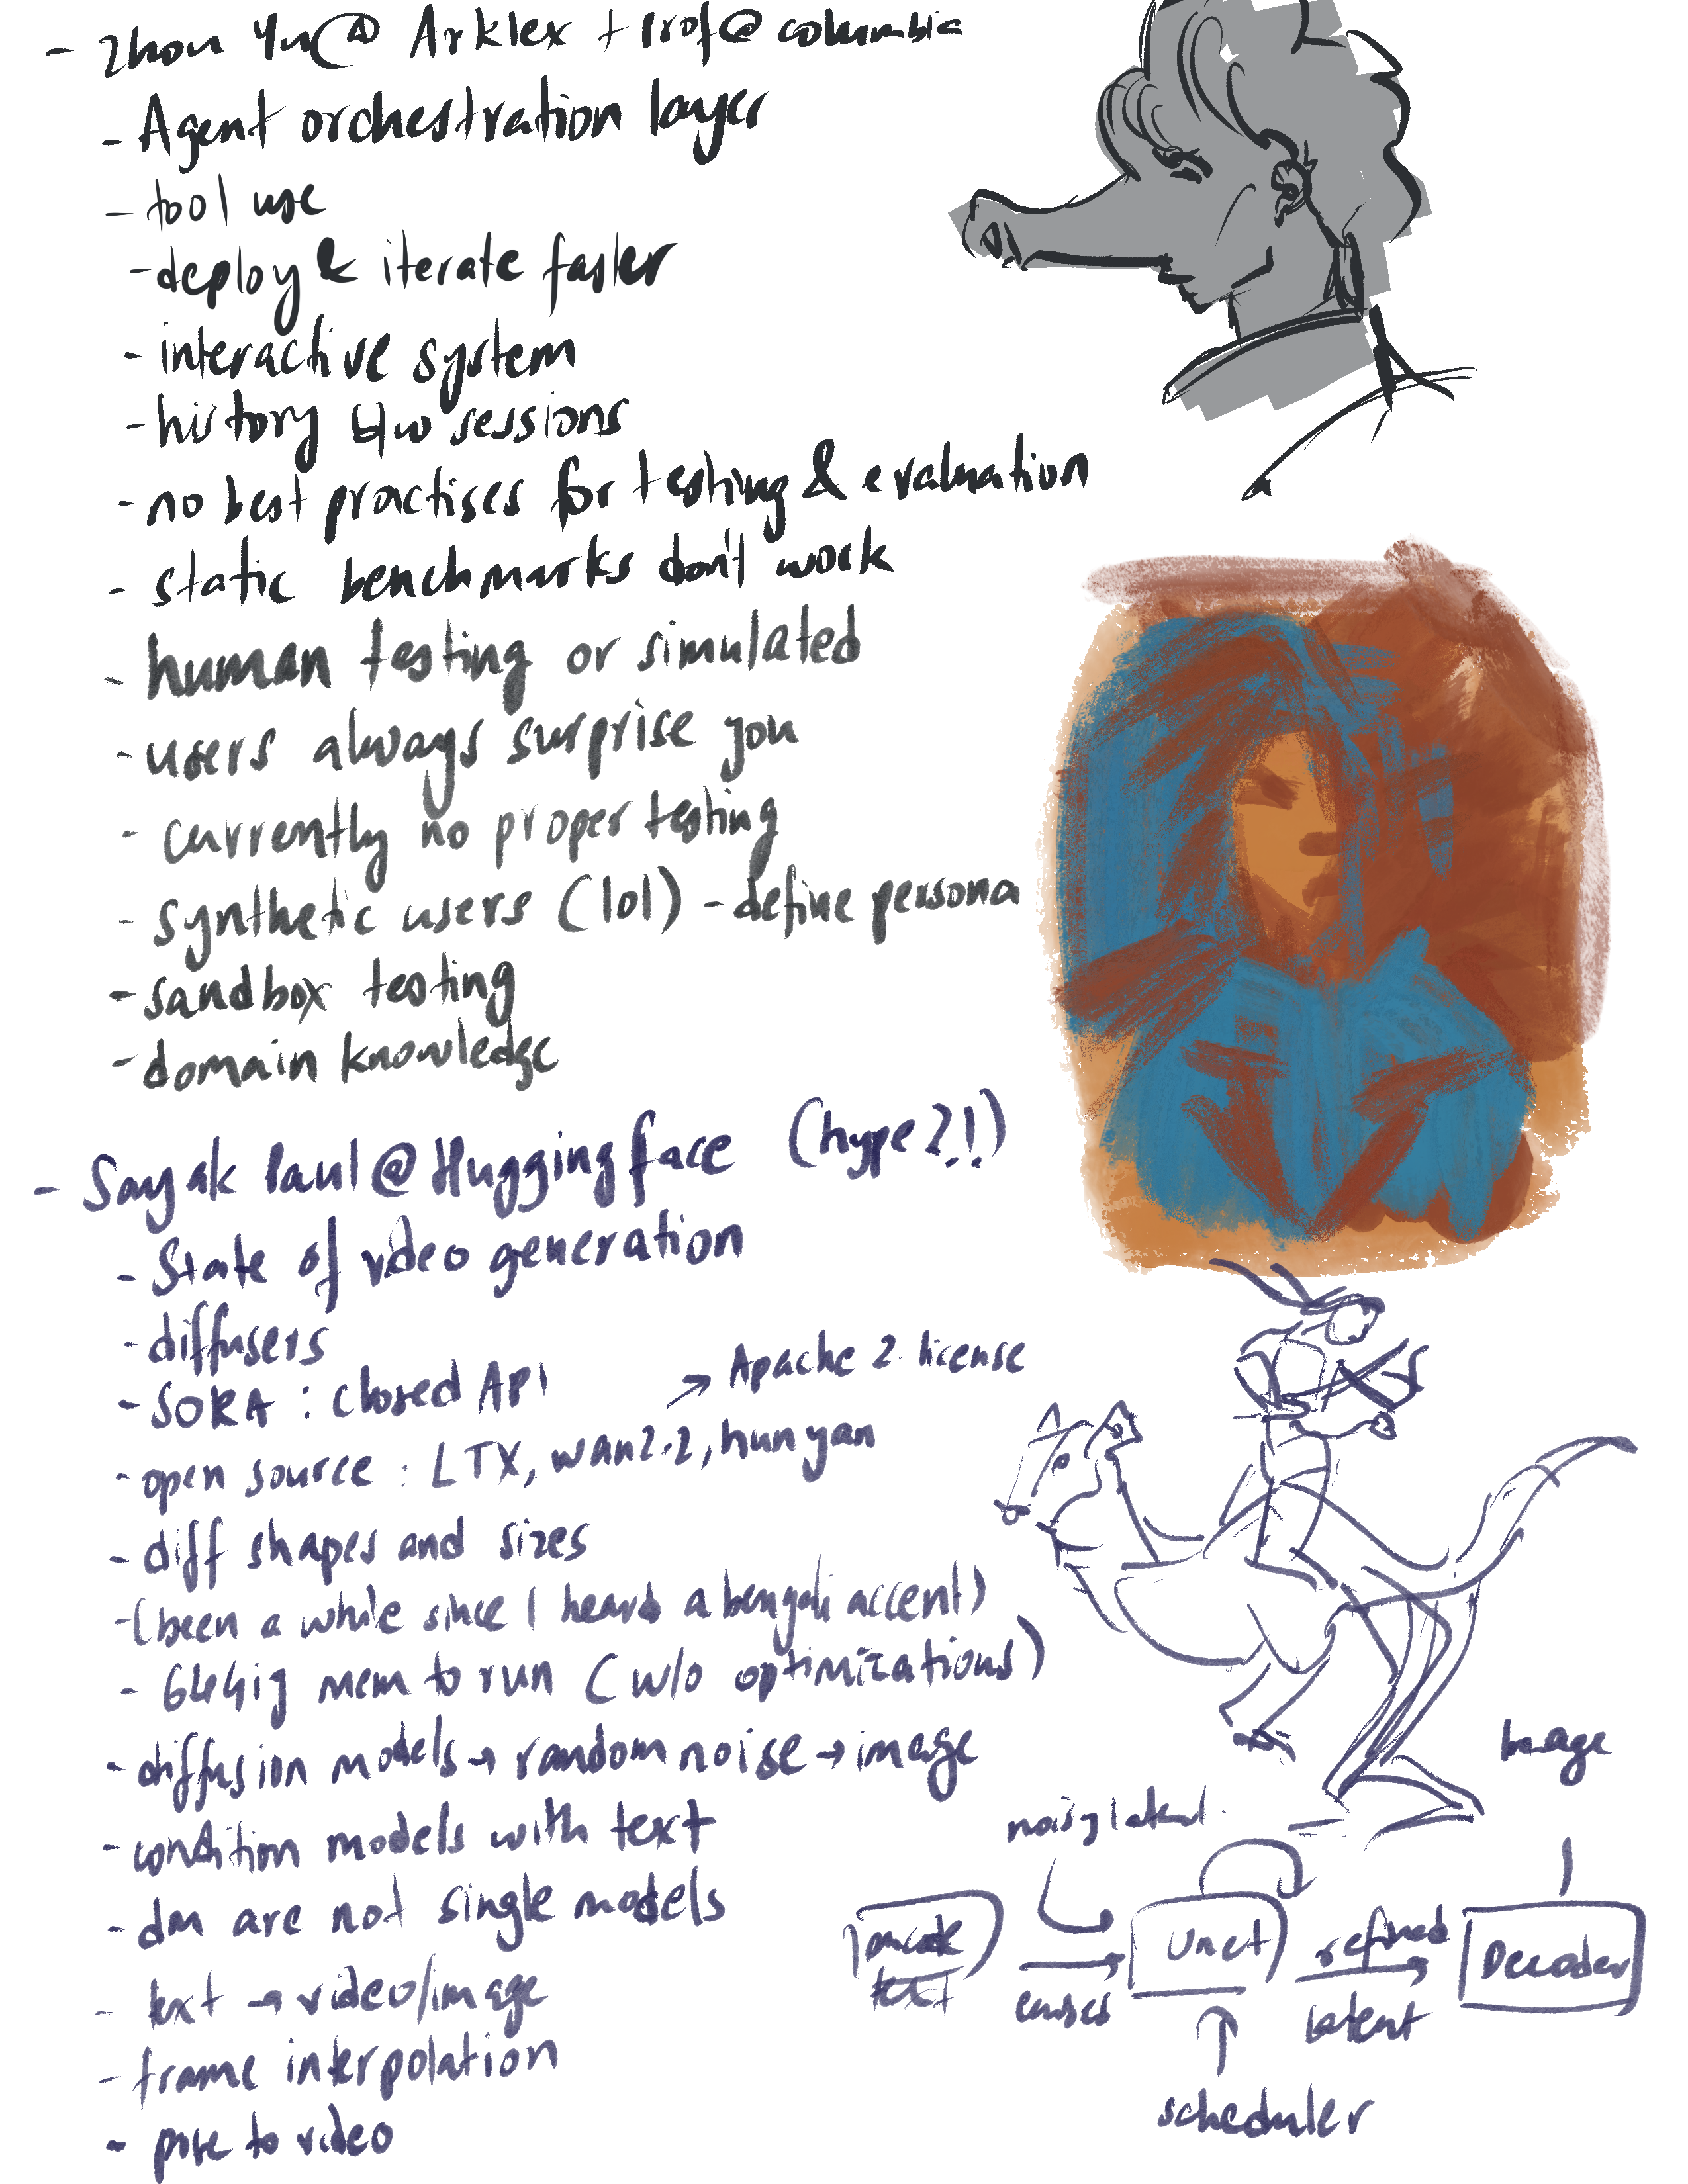 - Zhou Yu @ Arklex + Prof @ columbia
- Agent orchestration layer
- tool use
- deploy & iterate faster
- interactive system
- history b/w sessions
- no best practises for testing & evaluation
- static benchmarks don't work
- human testing or simulated
- users always surprise you
- currently no proper testing
- synthetic users (lol) - define persona
- sandbox testing
- domain knowledge
- Sayak Paul @ Hugging face (hype?!)
- State of video generation
- diffusers
- SORA : closed API
→ Apache 2. license
- open source : LTX, wan2.2, hunyan
- diff shapes and sizes
- (been a while since I heard a bengali accent)
- 64gig mem to run (w/o optimizations)
- diffusion models → random noise → image
- condition models with text
- dm are not single models
- text → video/image
- frame interpolation
- pose to video
image
noisy latent
text
Unet
refined
latent
Decoder
scheduler